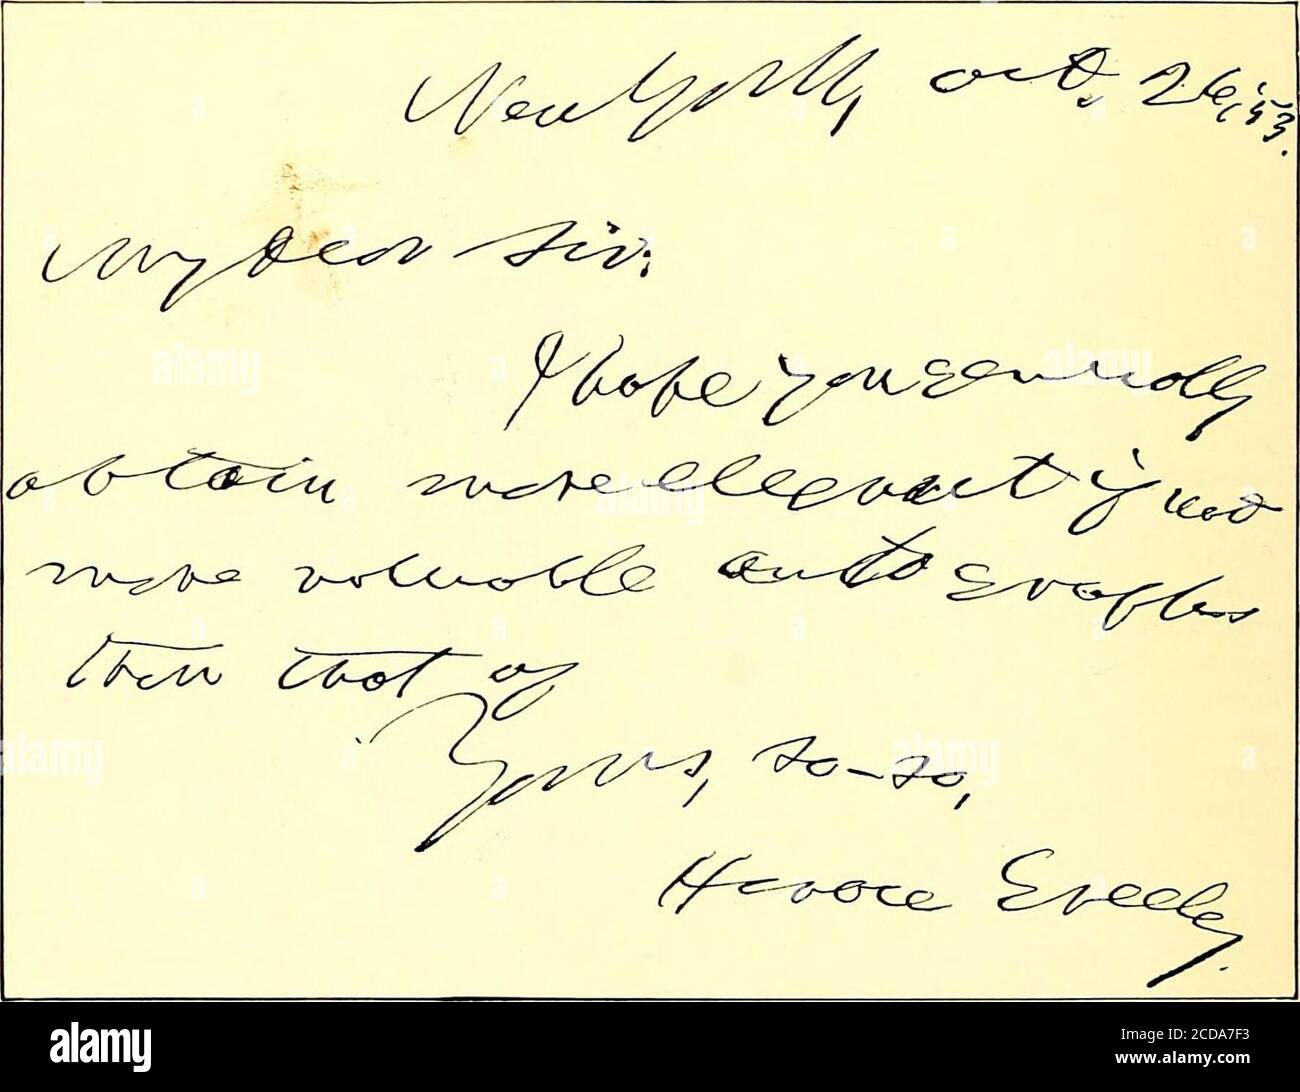 New York, Oct. 26, '53.
My Dear Sir:
I hope you generally
obtain more elegant if not
more valuable autographs
than that of
Yours, so-so,
Horace Greeley.
alamy
Image ID: 2CDA7F3
www.alamy.com